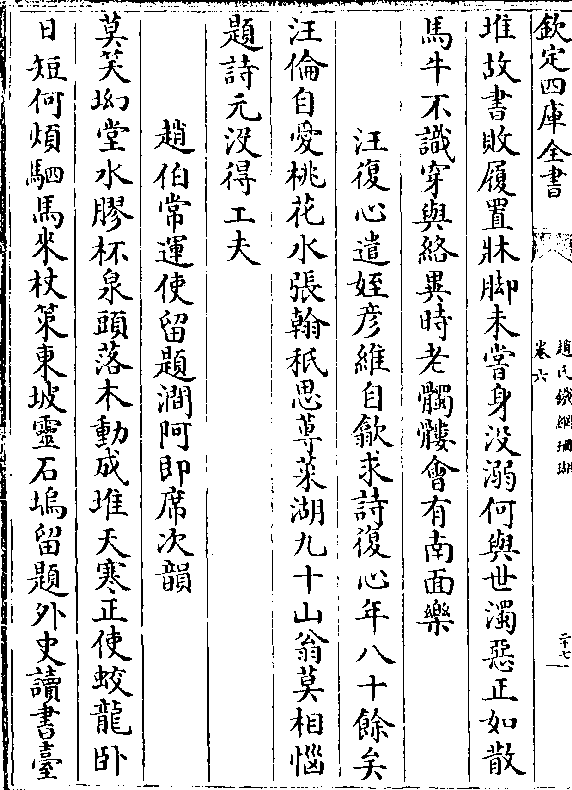 欽定四庫全書
趙氏鐵網珊瑚
卷六
二十七
堆故書敗履置牀脚未嘗身没溺何與世濁惡正如散
馬牛不識穿與絡異時老髑髏會有南面樂
汪復心遣姪彦維自歙求詩復心年八十餘矣
汪倫自愛桃花水張翰秖思蓴菜湖九十山翁莫相惱
題詩元没得工夫
趙伯常運使留題澗阿即席次韻
莫笑坳堂水膠杯泉頭落木動成堆天寒正使蛟龍卧
日短何煩駟馬來杖策東坡靈石塢留題外史讀書臺